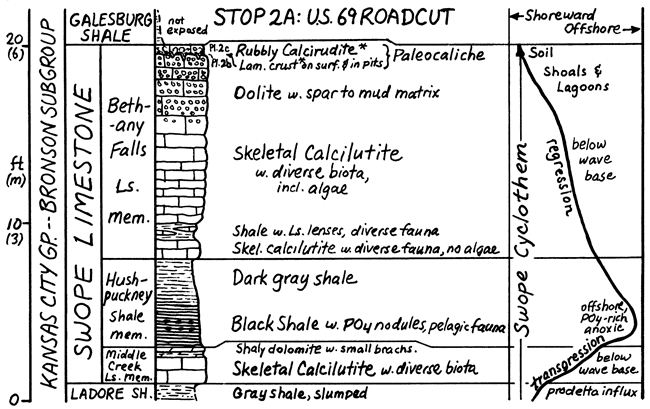 GALESBURG
SHALE
not
exposed
STOP 2A: U.S. 69 ROADCUT
←Shoreward
Offshore→
20
(6)
Pl.2c Rubbly Calcirudite*
Pl.2b Lam. crust* on surf. & in pits
Paleocaliche
Soil
Shoals &
Lagoons
Oolite w. spar to mud matrix
KANSAS CITY GP.--BRONSON SUBGROUP
SWOPE LIMESTONE
Beth-
any
Falls
Ls.
mem.
ft
(m)
Skeletal Calcilutite
w. diverse biota,
incl. algae
regression
below
wave
base
10
(3)
Shale w. Ls. lenses, diverse fauna
Skel. calcilutite w. diverse fauna, no algae
Swope Cyclothem
Hush-
puckney
Shale
mem.
Dark gray shale
Black Shale w. PO4 nodules, pelagic fauna
offshore,
PO4-rich
anoxic
Shaly dolomite w. small brachs.
Middle
Creek
Ls. mem.
Skeletal Calcilutite w. diverse biota
transgression
below
wave base
0
LADORE SH.
Gray shale, slumped
prodelta influx